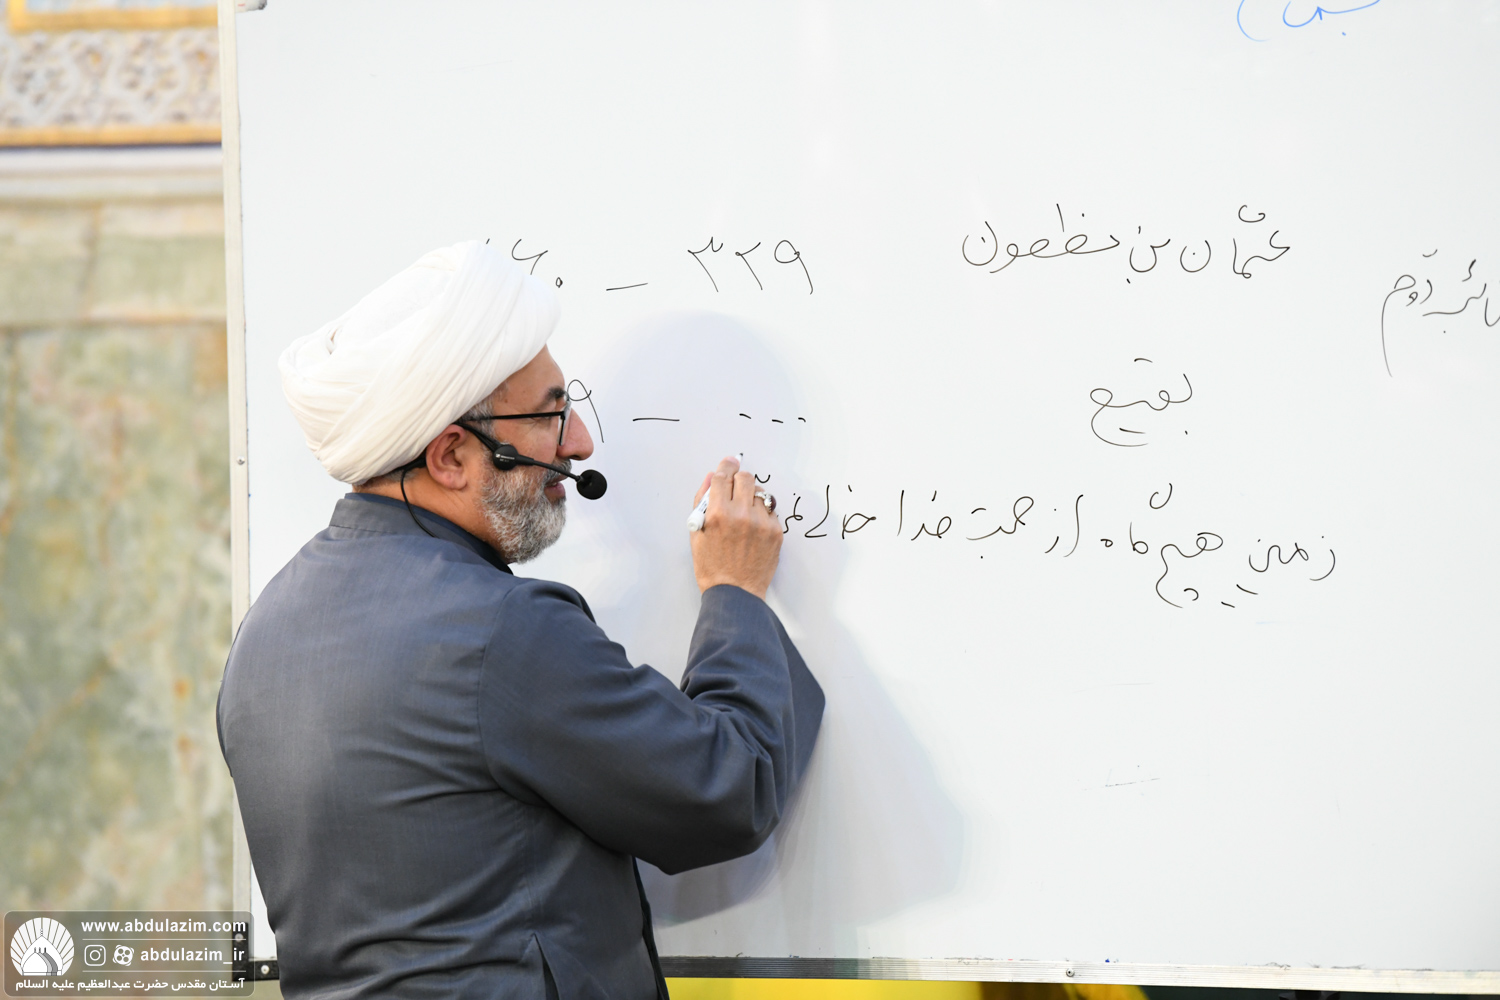 عثمان بن مظعون
۳۲۹ – ۲۶۰
نائب دوم
بقیع
... – ۳۲۹
زمین هیچگاه از حجت خدا خالی نمی
www.abdulazim.com
abdulazim_ir
آستان مقدس حضرت عبدالعظیم علیه السلام